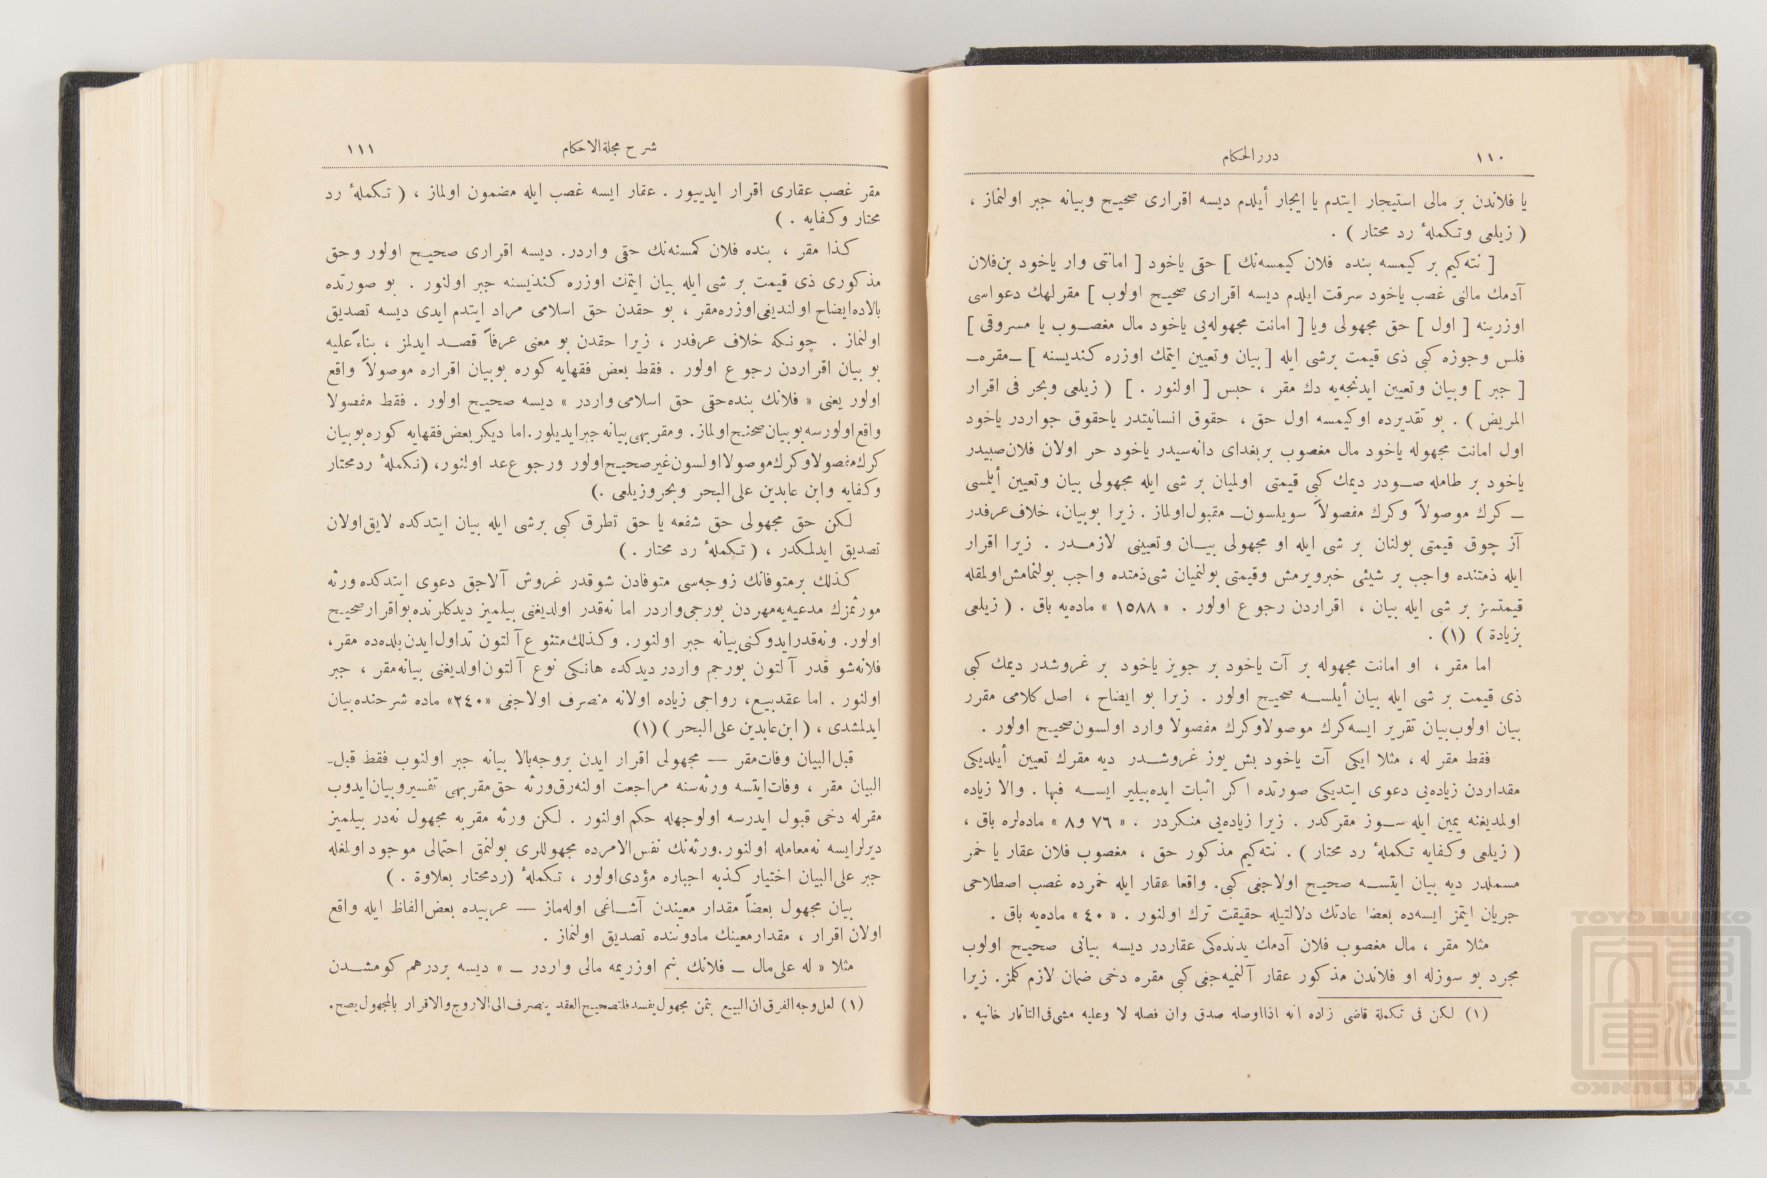 ١١٠
دررالحكام
يا فلاندن بر مالى استيجار ايتدم يا ايجار أيلدم ديسه اقرارى صحيح وبيانه جبر اولنماز ،
( زيلعى وتكملهٔ رد محتار ) .
[ نته‌كيم بر كيمسه بنده فلان كيمسه‌نك ] حتى ياخود [ امانتى وار ياخود بن‌فلان
آدمك مالنى غصب ياخود سرقت ايلدم ديسه اقرارى صحيح اولوب ] مقرلهك دعواسى
اوزرينه [ اول ] حق مجهولى ويا [ امانت مجهوله‌يى ياخود مال مغصوب يا مسروقى ]
فلس وجوزه كبى ذى قيمت برشى ايله [ بيان وتعيين ايتمك اوزره كنديسنه ] ــ مقره ــ
[ جبر ] وبيان وتعيين ايدنجه‌يه دك مقر ، حبس [ اولنور . ] ( زيلعى وبحر فى اقرار
المريض ) . بو تقديرده اوكيمسه اول حق ، حقوق انسانيتدر ياحقوق جواردر ياخود
اول امانت مجهوله ياخود مال مغصوب بربغداى دانه‌سيدر ياخود حر اولان فلان‌صبيدر
ياخود بر طامله صودر ديمك كبى قيمتى اولميان بر شى ايله مجهولى بيان وتعيين أيلمسى
ــ كرك موصولاً وكرك مفصولاً سويلسون ــ مقبول‌اولماز . زيرا بوبيان، خلاف‌عرفدر
آز چوق قيمتى بولنان بر شى ايله او مجهولى بيان وتعيينى لازمدر . زيرا اقرار
ايله ذمتنده واجب بر شيئى خبرويرمش وقيمتى بولنميان شى‌ذمتده واجب بولنمامش‌اولمغله
قيمتسز بر شى ايله بيان ، اقراردن رجوع اولور . « ١٥٨٨ » ماده‌يه باق . ( زيلعى
بزيادة ) (١) .
اما مقر ، او امانت مجهوله بر آت ياخود بر جويز ياخود بر غروشدر ديمك كبى
ذى قيمت بر شى ايله بيان أيلسه صحيح اولور . زيرا بو ايضاح ، اصل كلامى مقرر
بيان اولوب‌بيان تقرير ايسه‌كرك موصولاوكرك مفصولا وارد اولسون‌صحيح اولور .
فقط مقر له ، مثلا ايكى آت ياخود بش يوز غروشدر ديه مقرك تعيين أيلديكى
مقداردن زياده‌يى دعوى ايتديكى صورتده اكر اثبات ايده‌بيلير ايسه فبها . والا زياده
اولمديغنه يمين ايله سوز مقركدر . زيرا زياده‌يى منكردر . « ٧٦ و٨ » ماده‌لره باق ،
( زيلعى وكفايه تكملهٔ رد محتار ) . نته‌كيم مذكور حق ، مغصوب فلان عقار يا خمر
مسملدر ديه بيان ايتسه صحيح اولاجغى كبى. واقعا عقار ايله خمرده غصب اصطلاحى
جريان ايتمز ايسه‌ده بعضا عادتك دلالتيله حقيقت ترك اولنور . « ٤٠ » ماده‌يه باق .
مثلا مقر ، مال مغصوب فلان آدمك يدنده‌كى عقاردر ديسه بيانى صحيح اولوب
مجرد بو سوزله او فلاندن مذكور عقار آلنميه‌جغى كبى مقره دخى ضمان لازم كلمز. زيرا
(١) لكن فى تكملة قاضى زاده انه اذااوصله صدق وان فصله لا وعليه مشى‌فى‌التاتار خانيه .
شرح مجلةالاحكام
١١١
مقر غصب عقارى اقرار ايدييور . عقار ايسه غصب ايله مضمون اولماز ، ( تكملهٔ رد
محتار وكفايه . )
كذا مقر ، بنده فلان كمسنه‌نك حقى واردر. ديسه اقرارى صحيح اولور وحق
مذكورى ذى قيمت بر شى ايله بيان ايتمك اوزره كنديسنه جبر اولنور . بو صورتده
بالاده‌ايضاح اولنديغى‌اوزره‌مقر ، بو حقدن حق اسلامى مراد ايتدم ايدى ديسه تصديق
اولنماز . چونكه خلاف عرفدر ، زيرا حقدن بو معنى عرفاً قصد ايدلمز ، بناءًعليه
بو بيان اقراردن رجوع اولور . فقط بعض فقهايه كوره بوبيان اقراره موصولاً واقع
اولور يعنى « فلانك بنده‌حقى حق اسلامى واردر » ديسه صحيح اولور . فقط مفصولا
واقع‌اولورسه‌بوبيان‌صحيح‌اولماز. ومقربهى‌بيانه جبرايديلور.اما ديكربعض‌فقهايه كوره‌بوبيان
كرك‌مفصولاوكرك‌موصولااولسون‌غيرصحيح‌اولور ورجوع‌عد اولنور، (تكملهٔ ردمحتار
وكفايه وابن عابدين على‌البحر وبحروزيلعى .)
لكن حق مجهولى حق شفعه يا حق تطرق كبى برشى ايله بيان ايتدكده لايق‌اولان
تصديق ايدلمكدر ، ( تكملهٔ رد محتار . )
كذلك برمتوفانك زوجه‌سى متوفادن شوقدر غروش آلاجق دعوى ايتدكده ورثه
مورثمزك مدعيه‌يه‌مهردن بورجى‌واردر اما نه‌قدر اولديغنى بيلميز ديدكلرنده‌بواقرارصحيح
اولور. ونه‌قدرايدوكنى‌بيانه جبر اولنور. وكذلك‌متنوع‌آلتون تداول‌ايدن‌بلده‌ده مقر،
فلانه‌شو قدر آلتون بورجم واردر ديدكده هانكى نوع آلتون‌اولديغنى بيانه‌مقر ، جبر
اولنور . اما عقدبيع، رواجى زياده اولانه منصرف اولاجغى «٢٤٠» ماده شرحنده‌بيان
ايدلمشدى ، ( ابن‌عابدين على‌البحر ) (١)
قبل‌البيان وفات‌مقر — مجهولى اقرار ايدن بروجه‌بالا بيانه جبر اولنوب فقط قبل-
البيان مقر ، وفات‌ايتسه ورثه‌سنه مراجعت اولنه‌رق‌ورثه حق‌مقربهى تفسيروبيان‌ايدوب
مقرله دخى قبول ايدرسه اولوجهله حكم‌اولنور . لكن ورثه مقربه مجهول نه‌در بيلميز
ديرلرايسه نه‌معامله اولنور.ورثه‌نك نفس‌الامرده مجهوللرى بولنمق احتمالى موجود اولمغله
جبر على‌البيان اختيار كذبه اجباره مؤدى‌اولور ، تكملهٔ (ردمحتار بعلاوة . )
بيان مجهول بعضاً مقدار معيندن آشاغى اوله‌ماز — عربيده بعض‌الفاظ ايله واقع
اولان اقرار ، مقدارمعينك مادوننده تصديق اولنماز .
مثلا « له على‌مال ــ فلانك بنم اوزريمه مالى واردر ــ » ديسه بردرهم كومشدن
(١) لعل‌وجه‌الفرق‌ان‌البيع بثمن مجهول‌يفسدفلتصحيح‌العقد ينصرف‌الى‌الاروج‌والاقرار بالمجهول‌يصح.
TOYO BUNKO
TOYO BUNKO